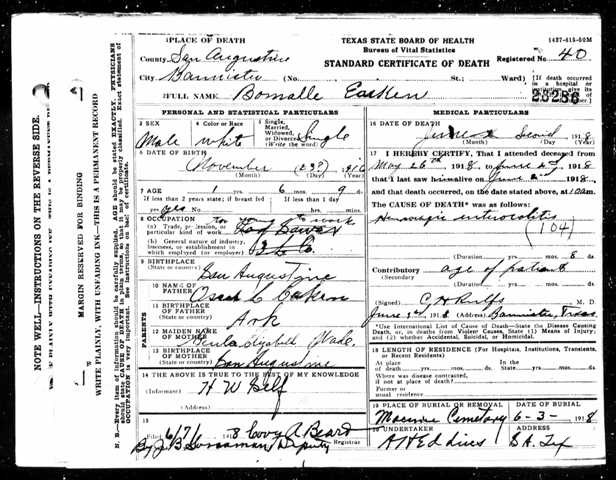 NOTE WELL—INSTRUCTIONS ON THE REVERSE SIDE.
MARGIN RESERVED FOR BINDING
WRITE PLAINLY, WITH UNFADING INK—THIS IS A PERMANENT RECORD
1 PLACE OF DEATH
TEXAS STATE BOARD OF HEALTH
1437-615-50M
Bureau of Vital Statistics
County San Augustine
STANDARD CERTIFICATE OF DEATH
Registered No. 40
City Bannister (No. St.; Ward)
[If death occurred in a hospital or institution, give its
25286
FULL NAME
PERSONAL AND STATISTICAL PARTICULARS
3 SEX Male
4 Color or Race white
5 Single, Married, Widowed, or Divorced (Write the word) Single
6 DATE OF BIRTH
November (23?) 1916
(Month) (Day) (Year)
7 AGE 1 yrs. 6 mos. 9 ds.
If less than 2 years state if breast fed If less than 1 day
Yes No hrs. min.
8 OCCUPATION
(a) Trade, profession, or particular kind of work too young to work
(b) General nature of industry, business, or establishment in which employed (or employer)
9 BIRTHPLACE
(State or country) San Augustine
PARENTS
10 NAME OF FATHER
11 BIRTHPLACE OF FATHER
(State or country) Ark
12 MAIDEN NAME OF MOTHER Elizabeth Wade
13 BIRTHPLACE OF MOTHER
(State or country) San Augustine
14 THE ABOVE IS TRUE TO THE BEST OF MY KNOWLEDGE
(Informant) H W Self
(Address)
15
Filed 6/7/1918 Covy A Beard
Registrar
By J B Deputy
MEDICAL PARTICULARS
16 DATE OF DEATH
June 1918
(Month) (Day) (Year)
17 I HEREBY CERTIFY, That I attended deceased from
May 26th 1918, to June 2nd 1918
that I last saw him alive on June 2 1918.
and that death occurred, on the date stated above, at 10 am.
The CAUSE OF DEATH* was as follows:
(104)
(Duration) yrs. mos. 8 ds.
Contributory age of patient
(Secondary)
(Duration) yrs. mos. ds.
(Signed) C H M. D.
June 3rd, 1918 (Address) Bannister, Texas.
*Use International List of Cause of Death—State the Disease Causing Death, or, in Deaths from Violent Causes, State (1) Means of Injury; and (2) whether Accidental, Suicidal, or Homicidal.
18 LENGTH OF RESIDENCE (For Hospitals, Institutions, Transients, or Recent Residents)
At place of death yrs. mos. ds. State yrs. mos. ds.
Where was disease contracted, if not at place of death?
Former or usual residence
19 PLACE OF BURIAL OR REMOVAL
DATE OF BURIAL
Macedonia Cemetery 6-3-1918
20 UNDERTAKER
ADDRESS
A H Eddins S A. Tex